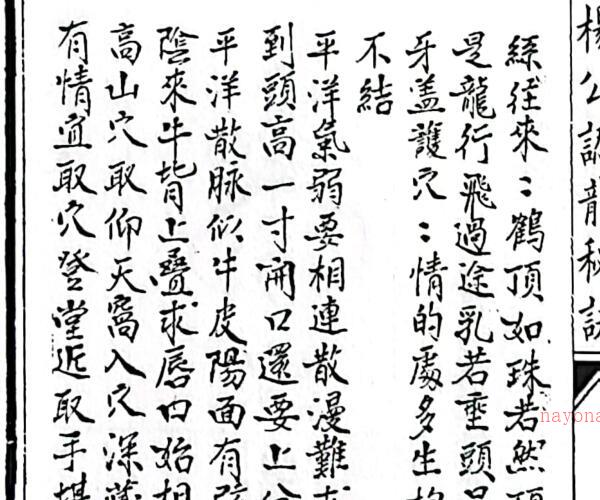 楊公認龍秘訣
絲往來:鶴頂如珠若然
是龍行飛過途乳若垂頭
牙盖護穴:情的處多生
不結
平洋氣弱要相連散漫難
到頭高一寸開口還要上
平洋散脉似牛皮陽面有
陰來牛背上疊求唇口始相
高山穴取仰天窩入穴深
有情宜取穴登堂近取手
nayona